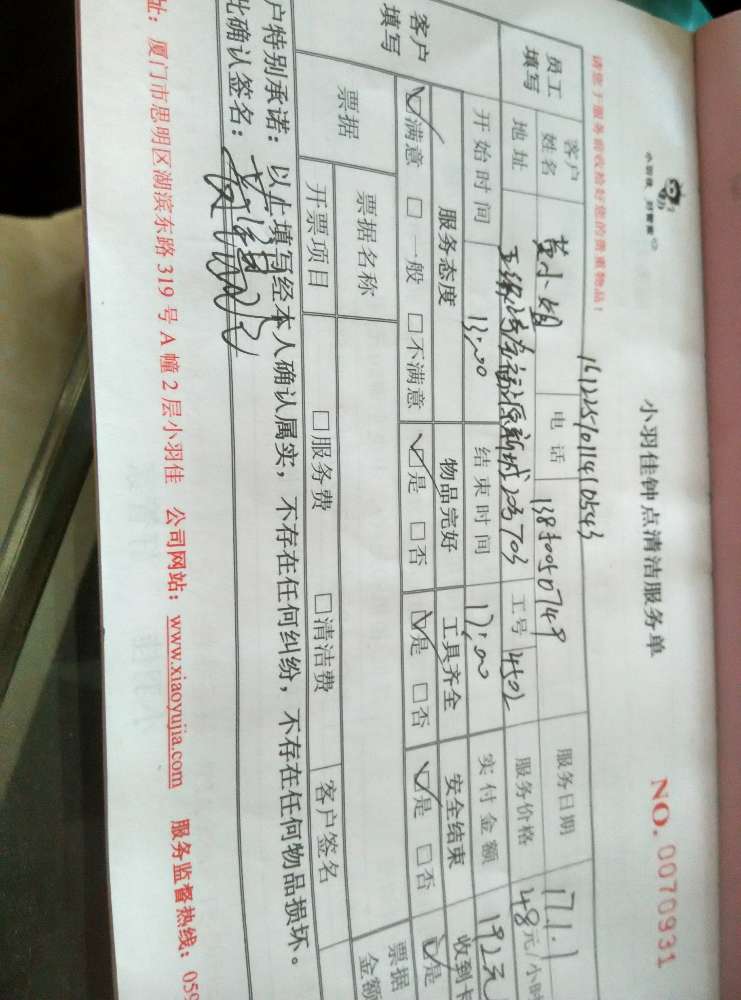 小羽佳钟点清洁服务单
NO. 0070931
小羽佳 好管家
161225101141０543
请您于服务前收拾好您的贵重物品！
员工填写 客户姓名 黄小娟 电话 服务日期 17.1.1
地址 福源新城 703 工号 4502 服务价格 48元/小时
开始时间 13:00 结束时间 17:00 实付金额 192元
客户填写 服务态度 物品完好 工具齐全 安全结束 收到卡
☑满意 □一般 □不满意 ☑是 □否 ☑是 □否 ☑是 □否 ☑是
票据 票据名称 票据金额
开票项目 □服务费 □清洁费 客户签名
户特别承诺：以上填写经本人确认属实，不存在任何纠纷，不存在任何物品损坏。
此确认签名：
址：厦门市思明区湖滨东路 319 号 A 幢 2 层小羽佳 公司网站：www.xiaoyujia.com 服务监督热线：059